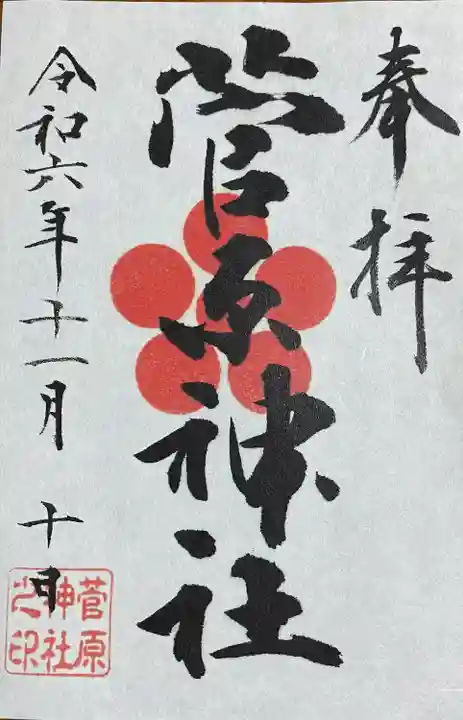 奉拝
菅原神社
令和六年十一月 十日
菅原
神社
之印